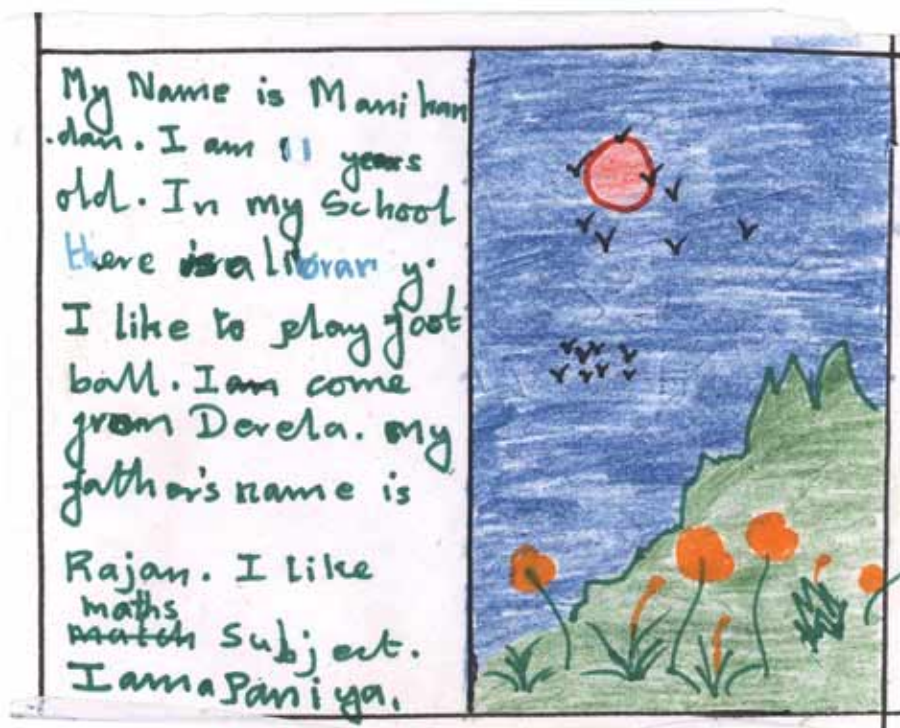 My Name is Manikan
.dan. I am 11 years
old. In my School
there is a library.
I like to play foot
ball. I am come
from Derela. my
father's name is
Rajan. I like
maths
match Subject.
I am a Paniya.